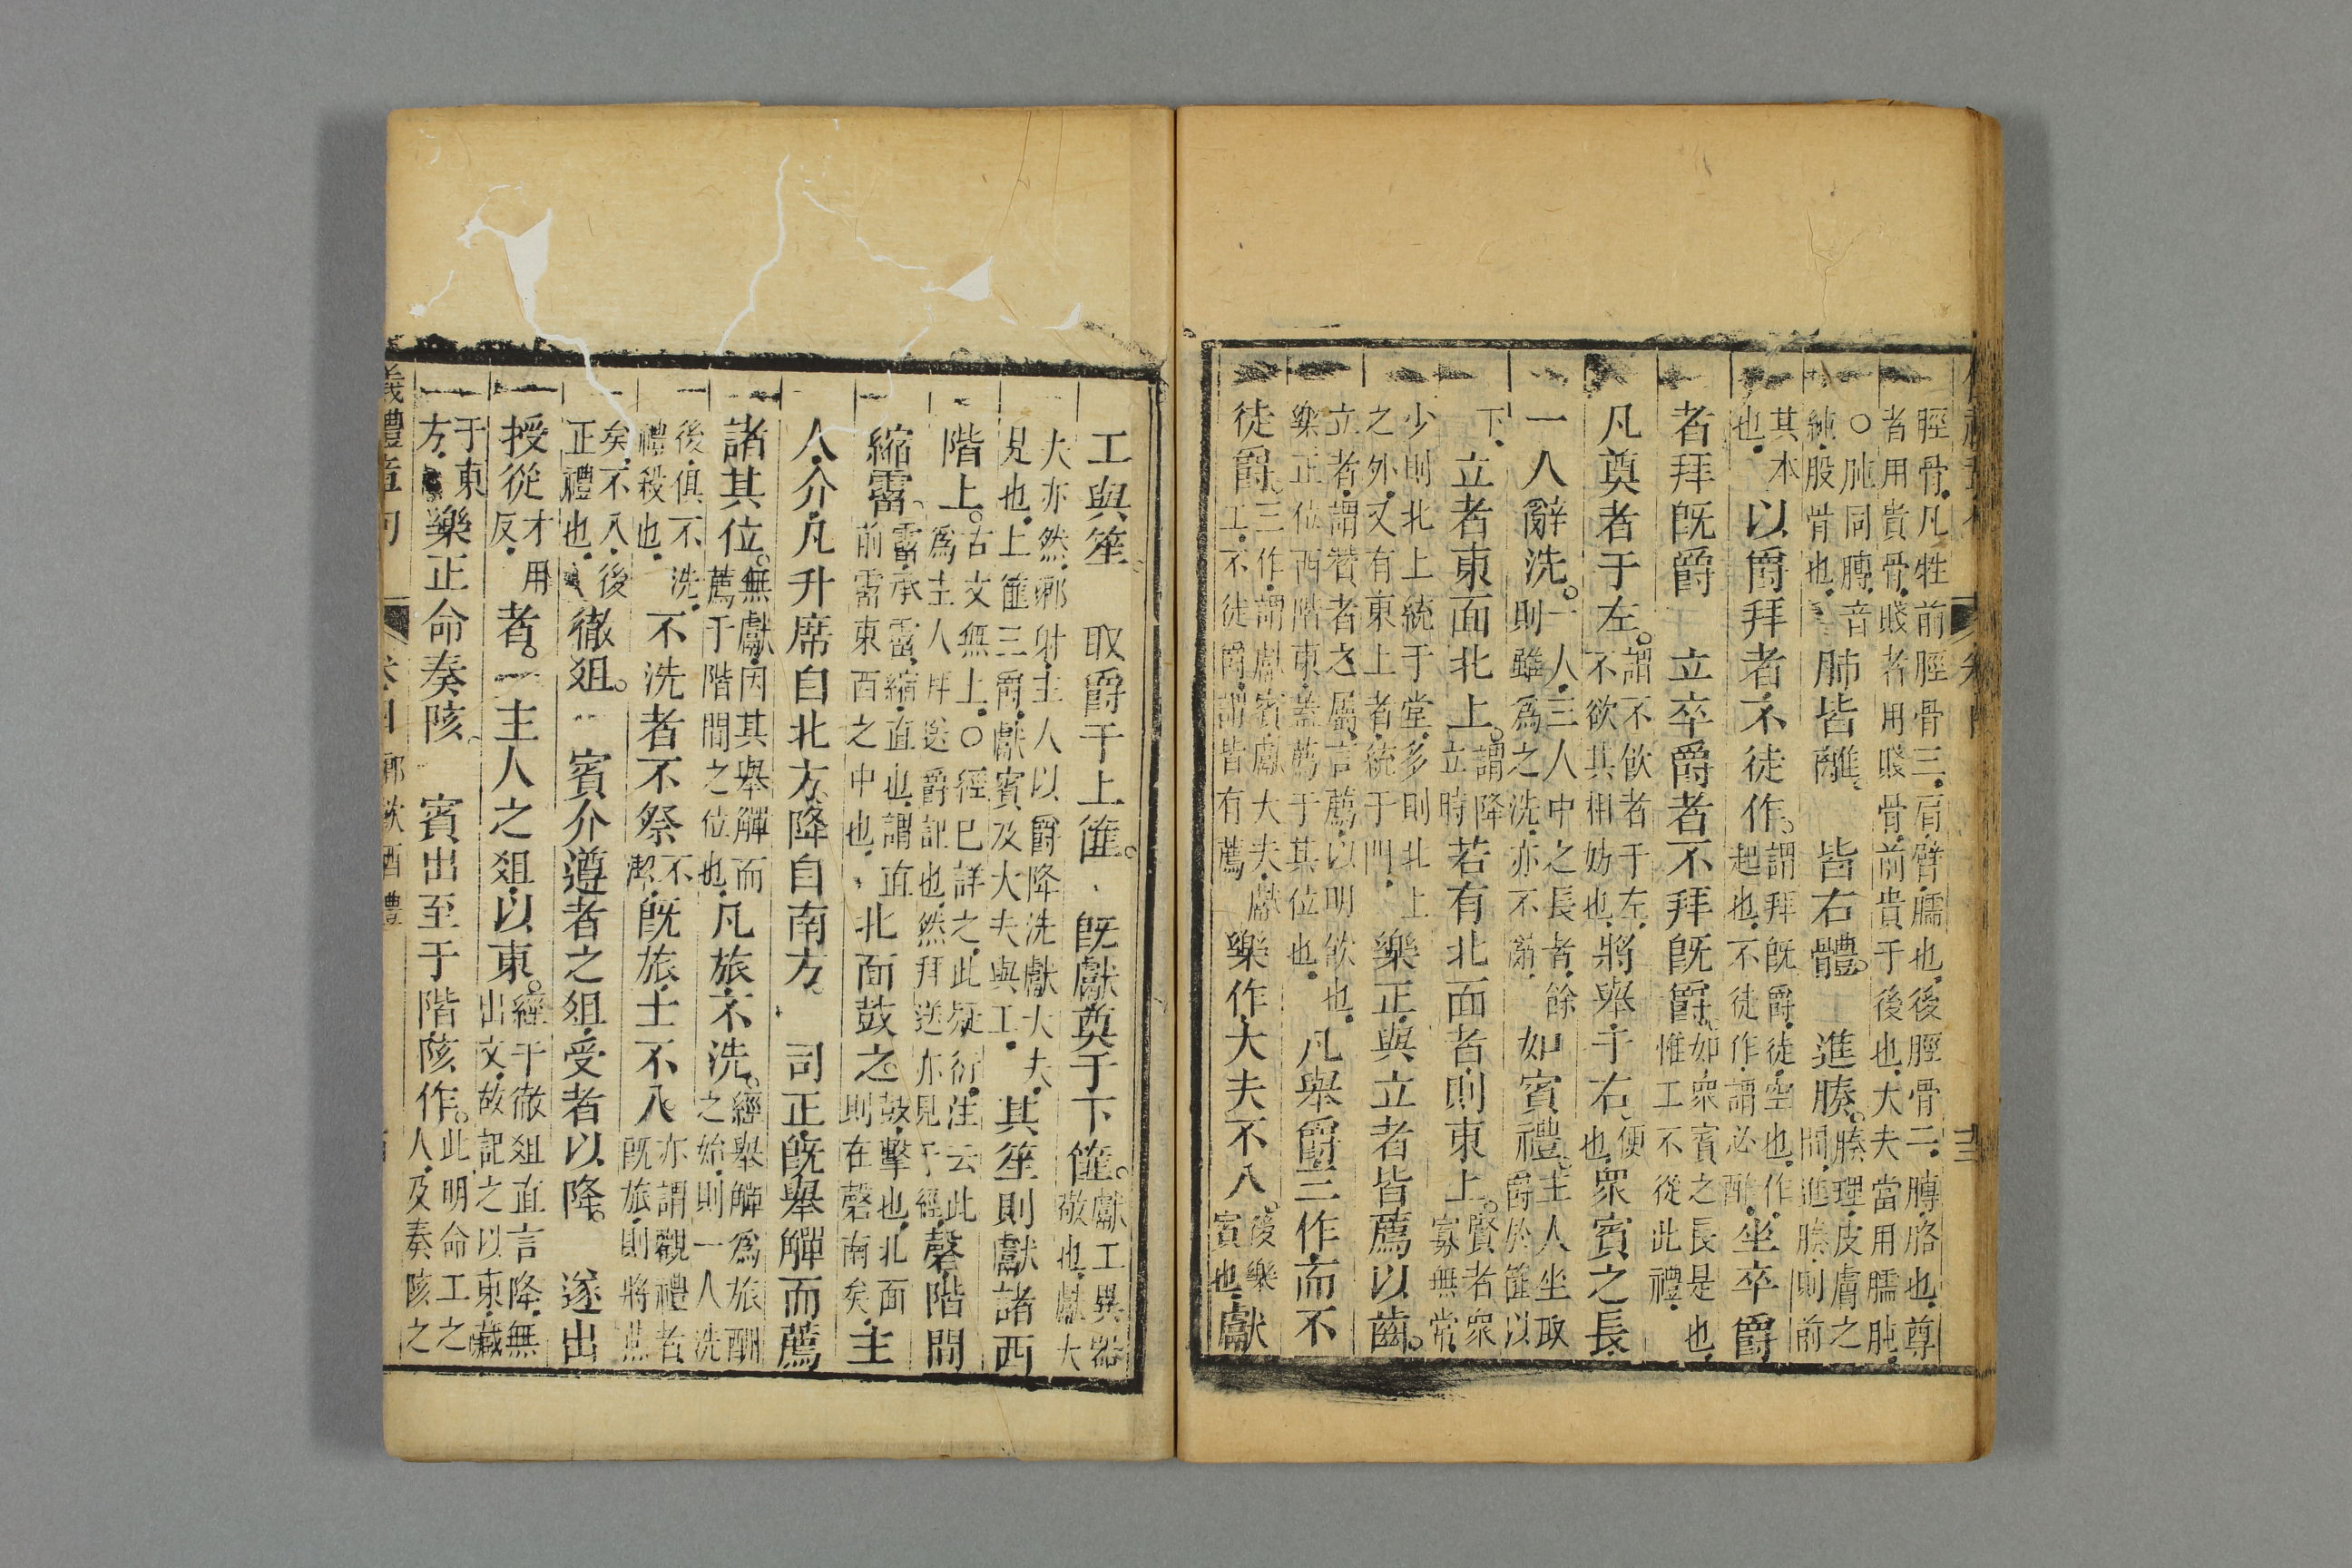 脛骨。凡牲前脛骨三。肩臂臑也。後脛骨二。膊胳也。尊
者用貴骨。賤者用賤骨。前貴于後也。大夫當用臑肫。
○肫同膊。音純。股骨也。肺皆離。皆右體。進腠。腠理。皮膚之間。進腠。則前
其本也。以爵拜者不徒作。謂拜既爵。徒空也。作起也。不徒作。謂必酢。坐卒爵
者拜既爵 立卒爵者不拜既爵。如衆賓之長是也惟工不從此禮。
凡奠者于左。謂不飲者于左。不欲其相妨也。將舉于右。便也。衆賓之長
一人辭洗。一人。三人中之長者。餘則雖爲之洗。亦不辭。如賓禮。主人坐取爵於篚以
下。立者東面北上。謂降立時若有北面者則東上。賢者衆寡無常
少則北上統于堂。多則北上之外。又有東上者。統于門。樂正與立者皆薦以齒。
立者。謂贊者之屬。言薦。以明飲也。樂正位西階東。蓋薦于其位也。凡舉爵三作而不
徒爵。三作。謂獻賓。獻大夫。獻工。不徒爵。謂皆有薦樂作。大夫不入。後樂賓也。獻
工與笙 取爵于上篚。既獻奠于下篚。獻工異器敬也。獻大
大亦然。鄉射。主人以爵降洗獻大夫。見也。上篚三爵。獻賓及大夫與工。其笙則獻諸西
階上。古文無上。○經已詳之。此疑衍。注云此爲主人拜送爵記也。然拜送亦見于經。磬階間
縮霤。霤承霤。縮。直也。謂直前霤東西之中也。北面鼓之鼓。擊也。北面則在磬南矣。主
人介。凡升席自北方。降自南方。司正既舉觶而薦
諸其位。無獻。因其舉觶而薦于階間之位也。凡旅不洗。經舉觶爲旅酬之始。則一人洗
後俱不洗。禮殺也。不洗者不祭不潔。既旅士不入。亦謂觀禮者既旅。則將燕
矣。不入。後正禮也。徹俎。賓介遵者之俎。受者以降。遂出
授從才用反。者。主人之俎。以東。經于徹俎直言降。無出文。故記之以東。藏
于東方。樂正命奏陔 賓出至于階陔作。此明命工之人。及奏陔之
儀禮章句 卷四 鄉飲酒禮